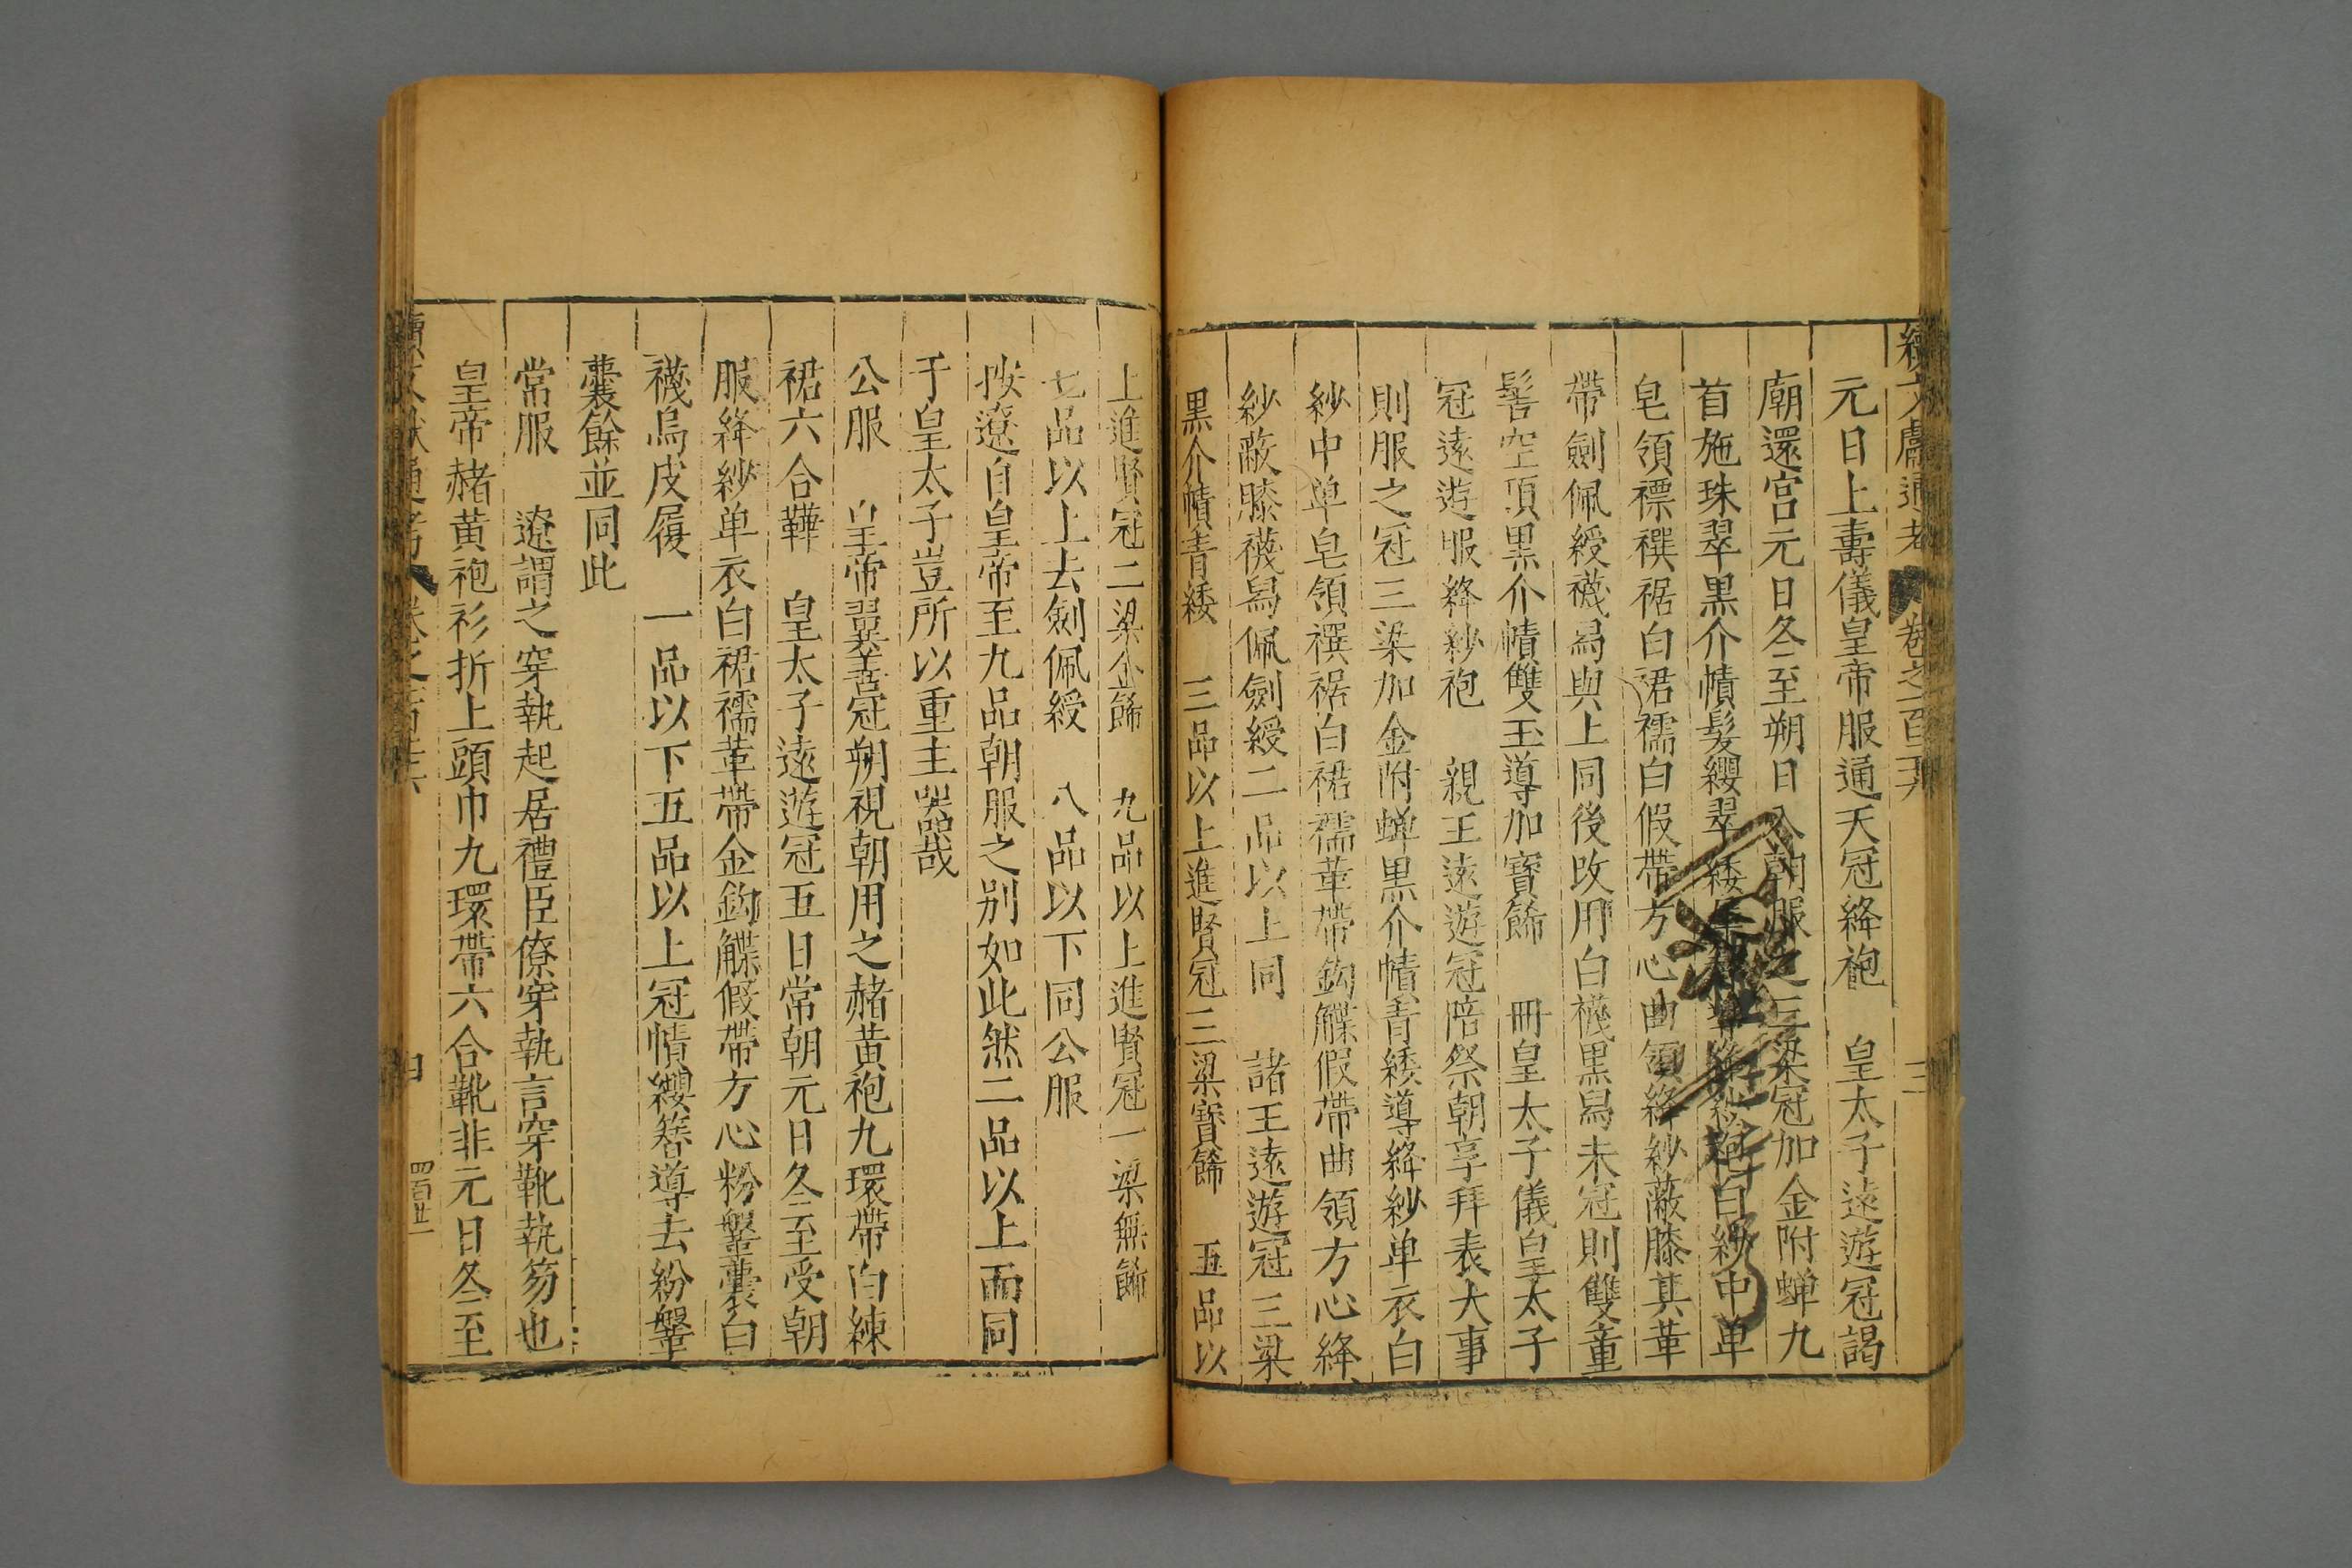 續文獻通考 卷之一百
三
元日上壽儀皇帝服通天冠絳袍 皇太子遠遊冠謁
廟還宮元日冬至朔日入朝服之三梁冠加金附蟬九
首施珠翠黑介幘髮纓翠緌 絳紗袍白紗中单
皂領褾襈裾白裙襦白假帶方心曲領絳紗蔽膝其革
帶劍佩綬襪舄與上同後改用白襪黑舄未冠則雙童
髻空頂黑介幘雙玉導加寳餙 冊皇太子儀皇太子
冠遠遊服絳紗袍 親王遠遊冠陪祭朝享拜表大事
則服之冠三梁加金附蟬黑介幘青緌導絳紗单衣白
紗中单皂領襈裾白裙襦革帶鈎䚢假帶曲領方心絳
紗蔽膝襪舄佩劍綬二品以上同 諸王遠遊冠三梁
黑介幘青緌 三品以上進賢冠三梁寳餙 五品以
上進賢冠二梁金餙 九品以上進賢冠一梁無餙
七品以上去劍佩綬 八品以下同公服
按遼自皇帝至九品朝服之别如此然二品以上而同
于皇太子豈所以重主噐哉
公服 皇帝翼善冠朔視朝用之赭黄袍九環帶白練
裙六合鞾 皇太子遠遊冠五日常朝元日冬至受朝
服絳紗单衣白裙襦革帶金鈎䚢假帶方心粉鞶囊白
襪烏皮履 一品以下五品以上冠幘纓簪導去紛鞶
囊餘並同此
常服 遼謂之穿執起居禮臣僚穿執言穿靴執笏也
皇帝赭黄袍衫折上頭巾九環帶六合靴非元日冬至
通考 卷之
四百廿一